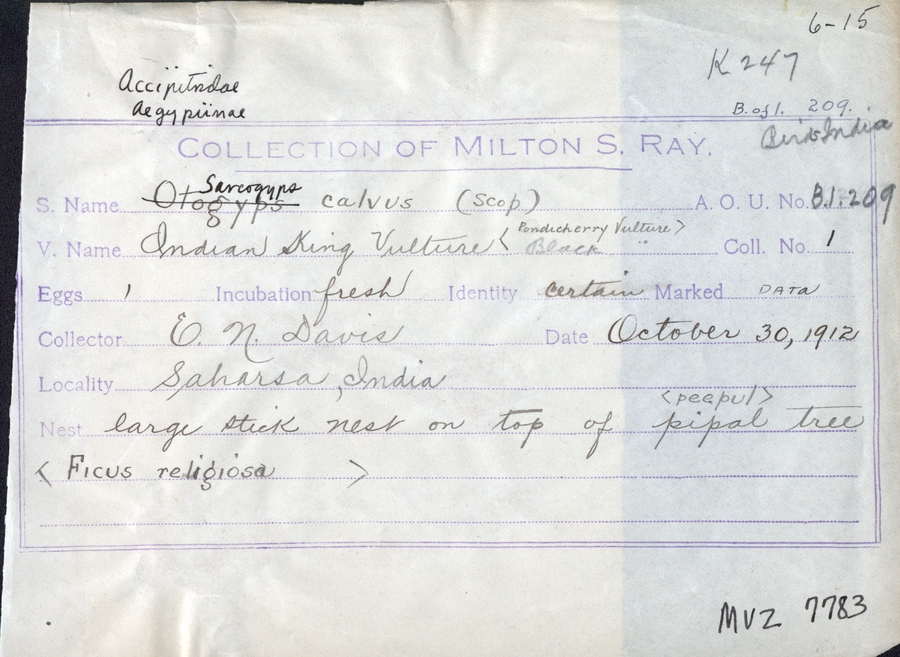 6-15
K 247
Accipitridae
Aegypiinae
B. of I. 209.
Birds India
COLLECTION OF MILTON S. RAY.
Sarcogyps
S. Name Otogyps calvus (Scop) A. O. U. No. B.I. 209
<Pondicherry Vulture>
V. Name Indian King Vulture Black " Coll. No. 1
Eggs 1 Incubation fresh Identity certain Marked DATA
Collector E. N. Davis Date October 30, 1912
Locality Saharsa, India
<peapul>
Nest large stick nest on top of pipal tree
<Ficus religiosa>
MVZ 7783